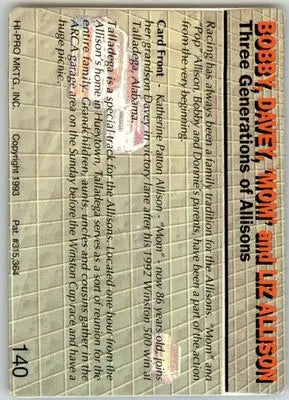 BOBBY, DAVEY, "MOM" and LIZ ALLISON
Three Generations of Allisons
Racing has always been a family tradition for the Allisons. "Mom" and
"Pop" Allison, Bobby and Donnie's parents, have been a part of the action
from the very beginning.
Card Front - Katherine Patton Allison - "Mom" - now 86 years old, joins
her grandson Davey in victory lane after his 1992 Winston 500 win at
Talladega, Alabama.
Talladega is a special track for the Allisons. Located one hour from the
Allison's home in Hueytown, Talladega serves as a sort of reunion for the
entire family. Grandchildren, aunts, uncles and cousins gather in the
ARCA garage area on the Sunday before the Winston Cup race and have a
huge picnic..
HI-PRO MKTG, INC. Copyright 1993 Pat. #315,364 140